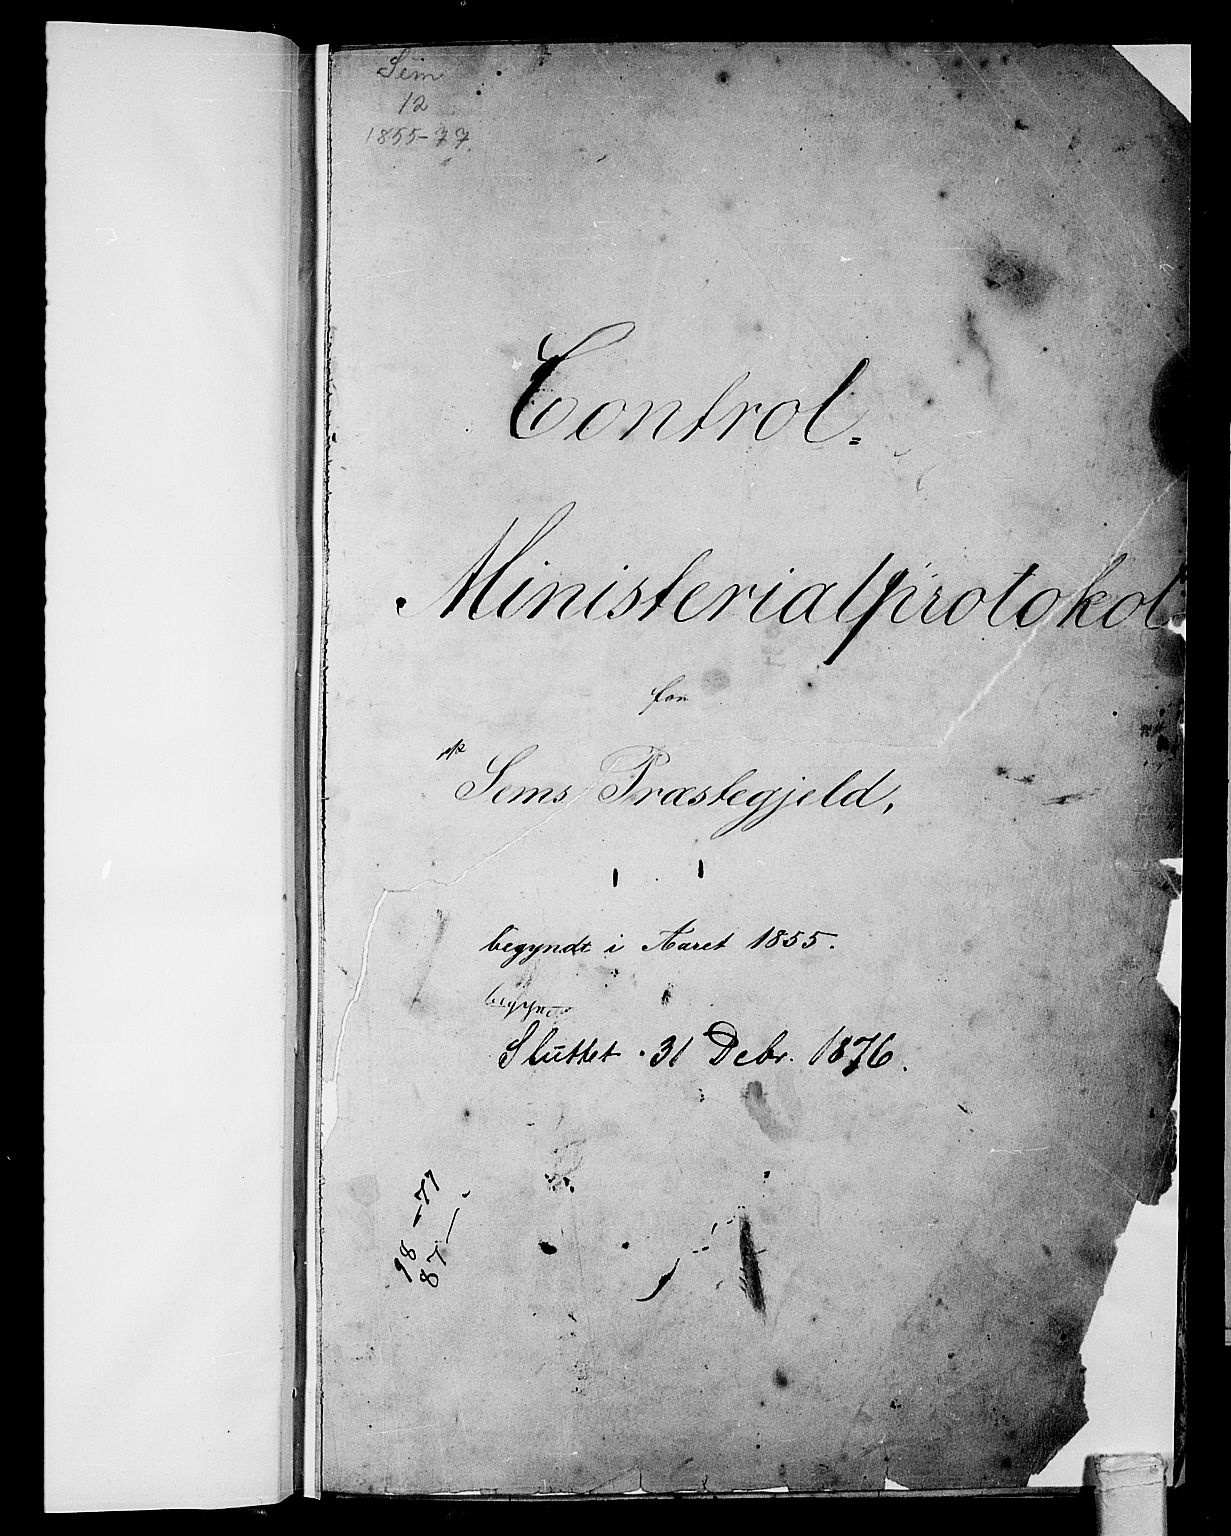 Sem
12
1855-77.
Control=
Ministerialprotokol
for
Sems Præstegjeld,
begyndt i Aaret 1855.
begyndt
Sluttet 31 Debr. 1876.